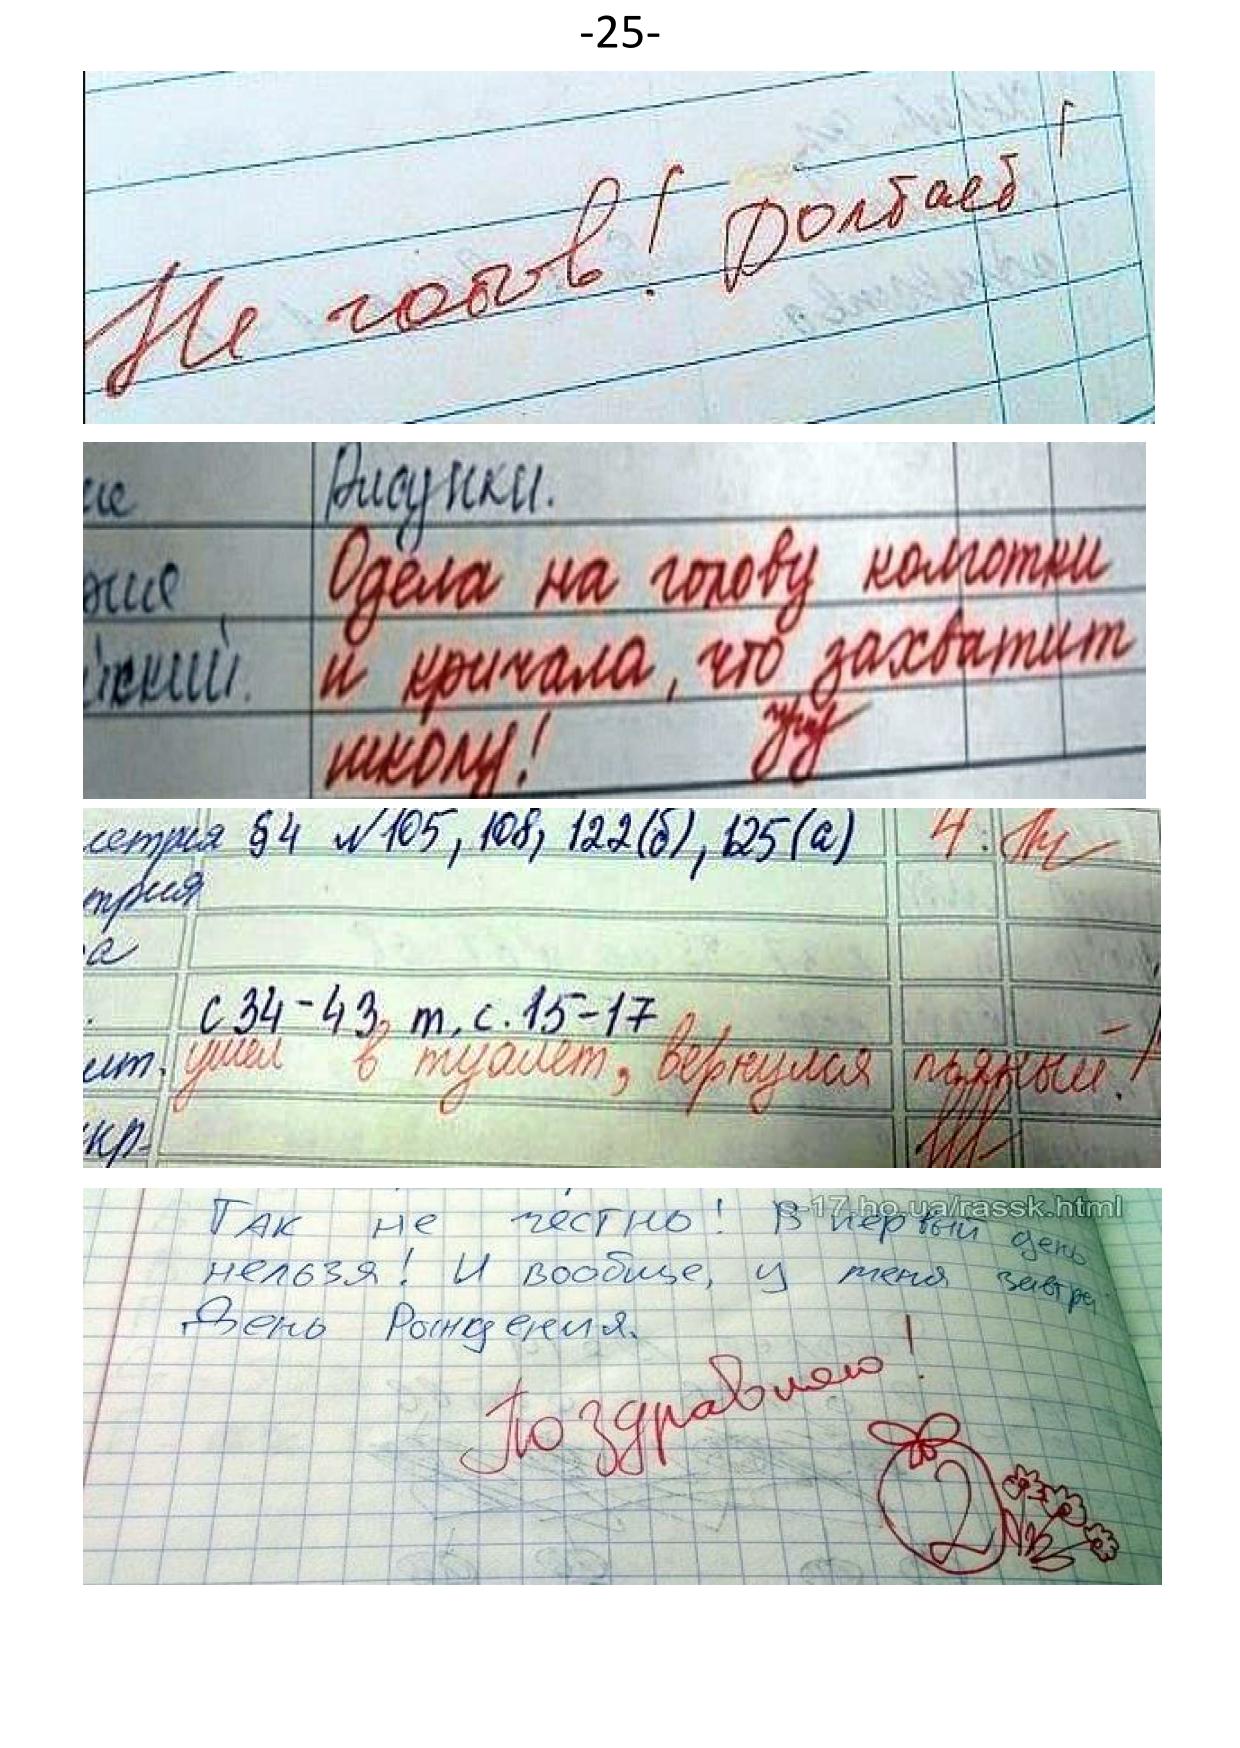 -25-
Не готов! Долбаеб!
ие Рисунки.
Одела на голову колготки
и кричала, что захватит
школу!
метрия §4 №105, 108, 122(б), 125(а) 4.
трия
а
с 34-43, т, с. 15-17
ит. ушел в туалет, вернулся пьяный!
кр.
s-17.ho.ua/rassk.html
Так не честно! В первый день
нельзя! И вообще, у меня завтра
День Рождения.
Поздравляю!
2